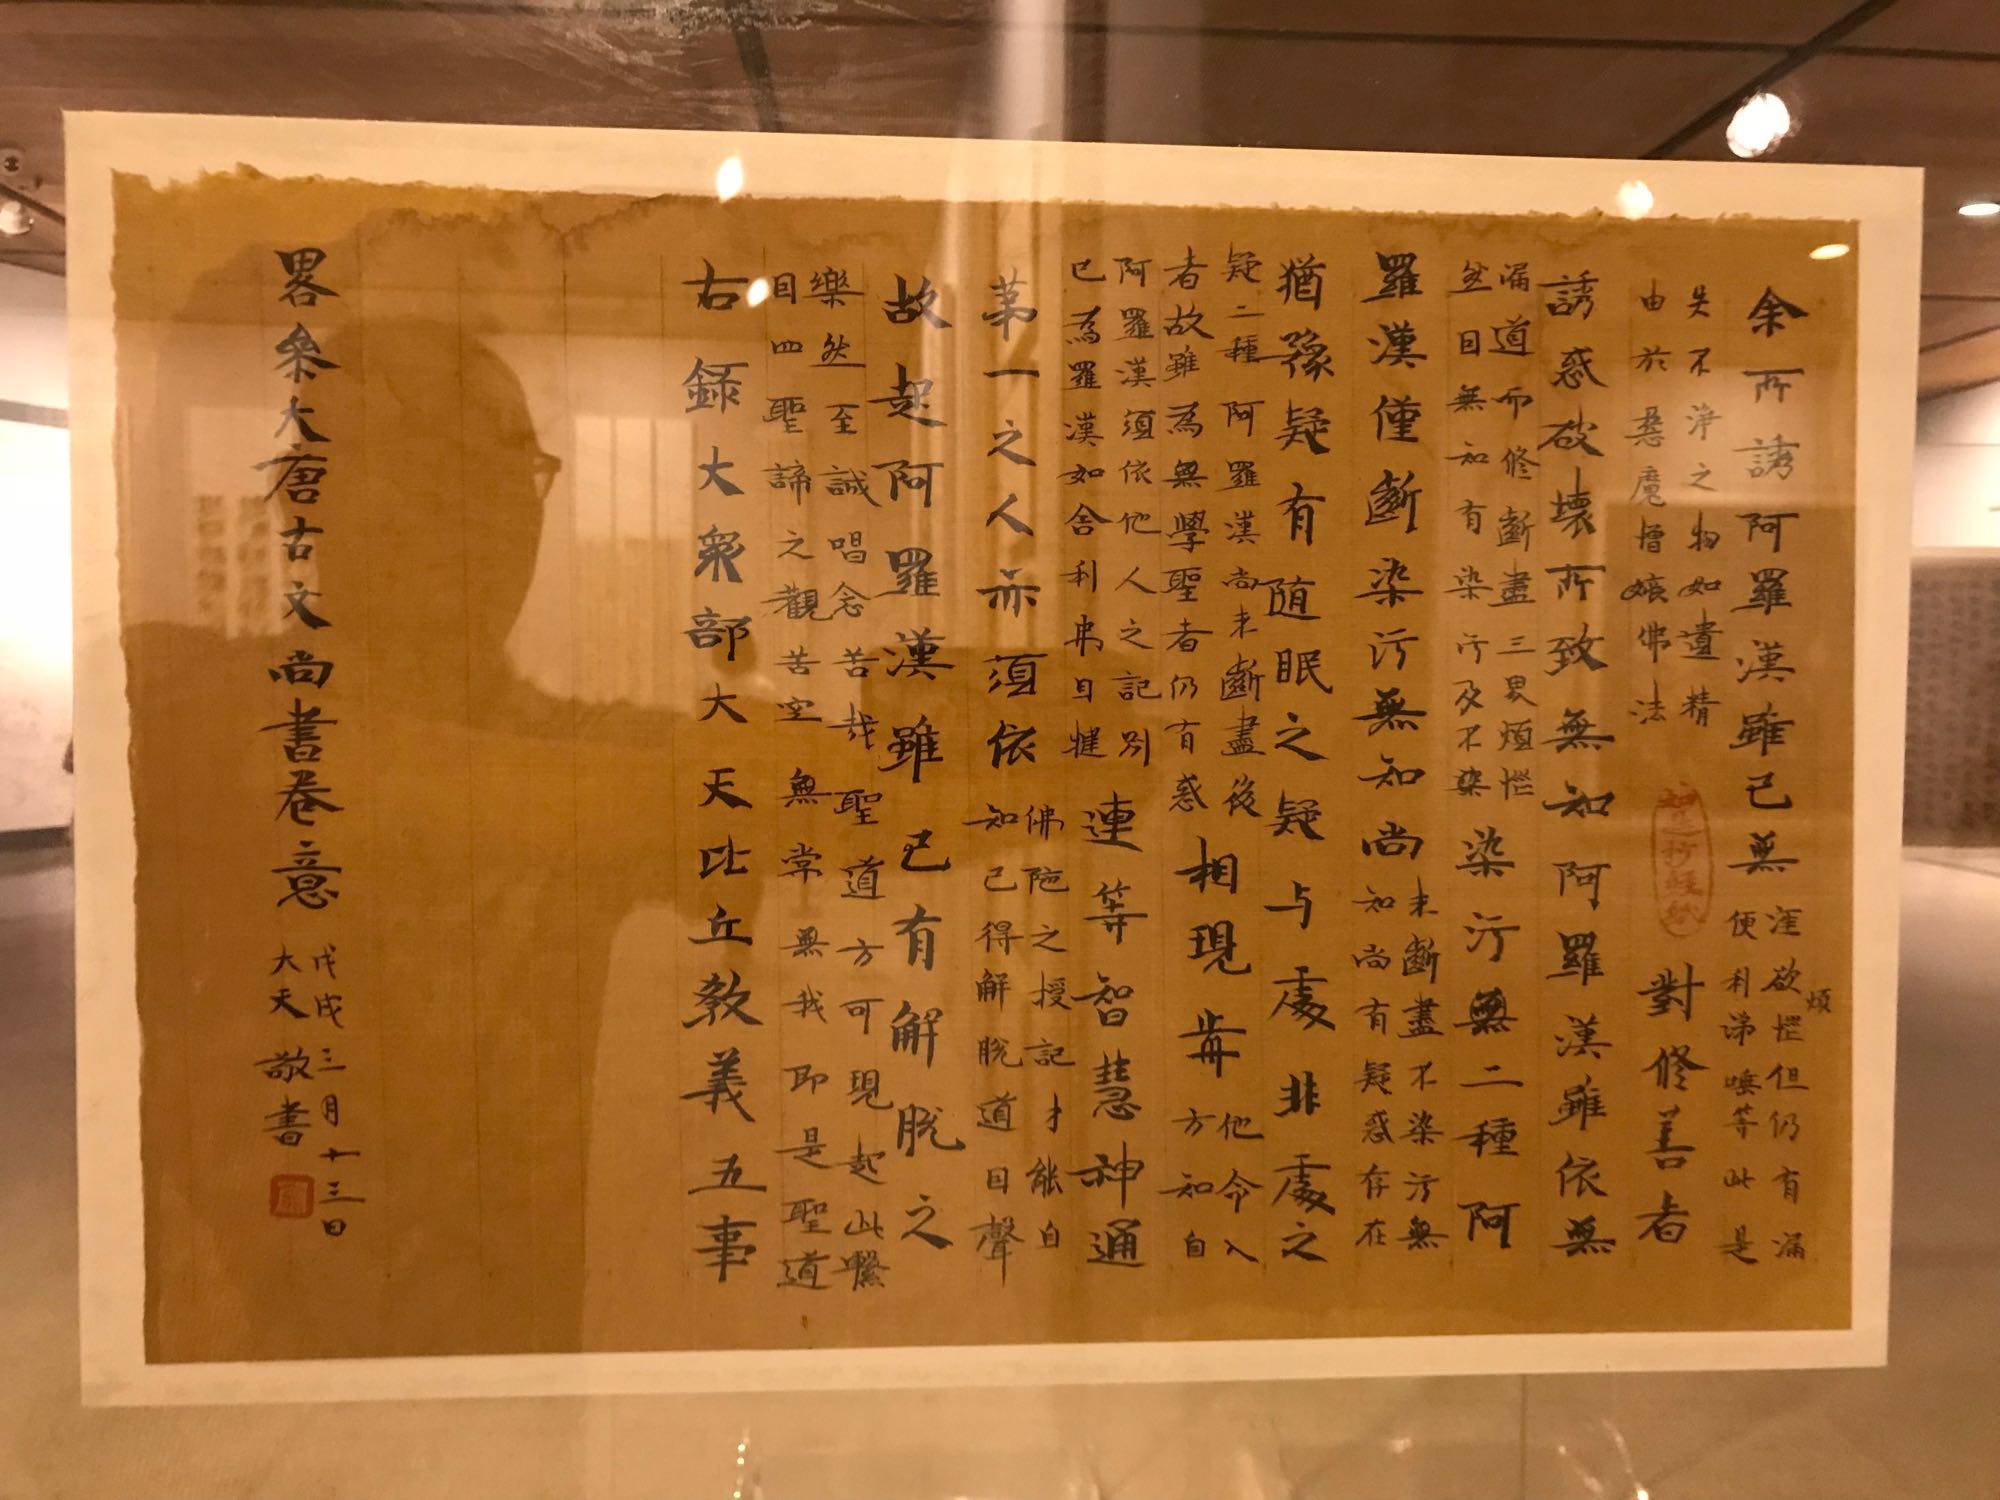 余所誘阿羅漢雖已無
淫欲煩惱但仍有漏
便利涕唾等此是
失不淨之物如遺精
由於惡魔憎嫉佛法
對修善者
誘惑破壞所致無知阿羅漢雖依無
漏道而修斷盡三界煩惱
然因無知有染污及不染
染污無二種阿
羅漢僅斷染污無知尚
未斷盡不染污無
知尚有疑惑存在
猶豫疑有随眠之疑与處非處之
疑二種阿羅漢尚未斷盡後
者故雖為無學聖者仍有惑
相現歬
他令入
方知自
阿羅漢須依他人之記别
已為羅漢如舍利弗目犍
連等智慧神通
第一之人亦須依
佛陁之授記才能自
知已得解脱道因聲
故起阿羅漢雖已有解脱之
樂然至誠唱念苦哉聖道方可現起此繫
因四聖諦之觀苦空無常無我即是聖道
右錄大衆部大天比丘教義五事
畧叅大唐古文尚書卷意
戊戌三月十三日
大天敬書